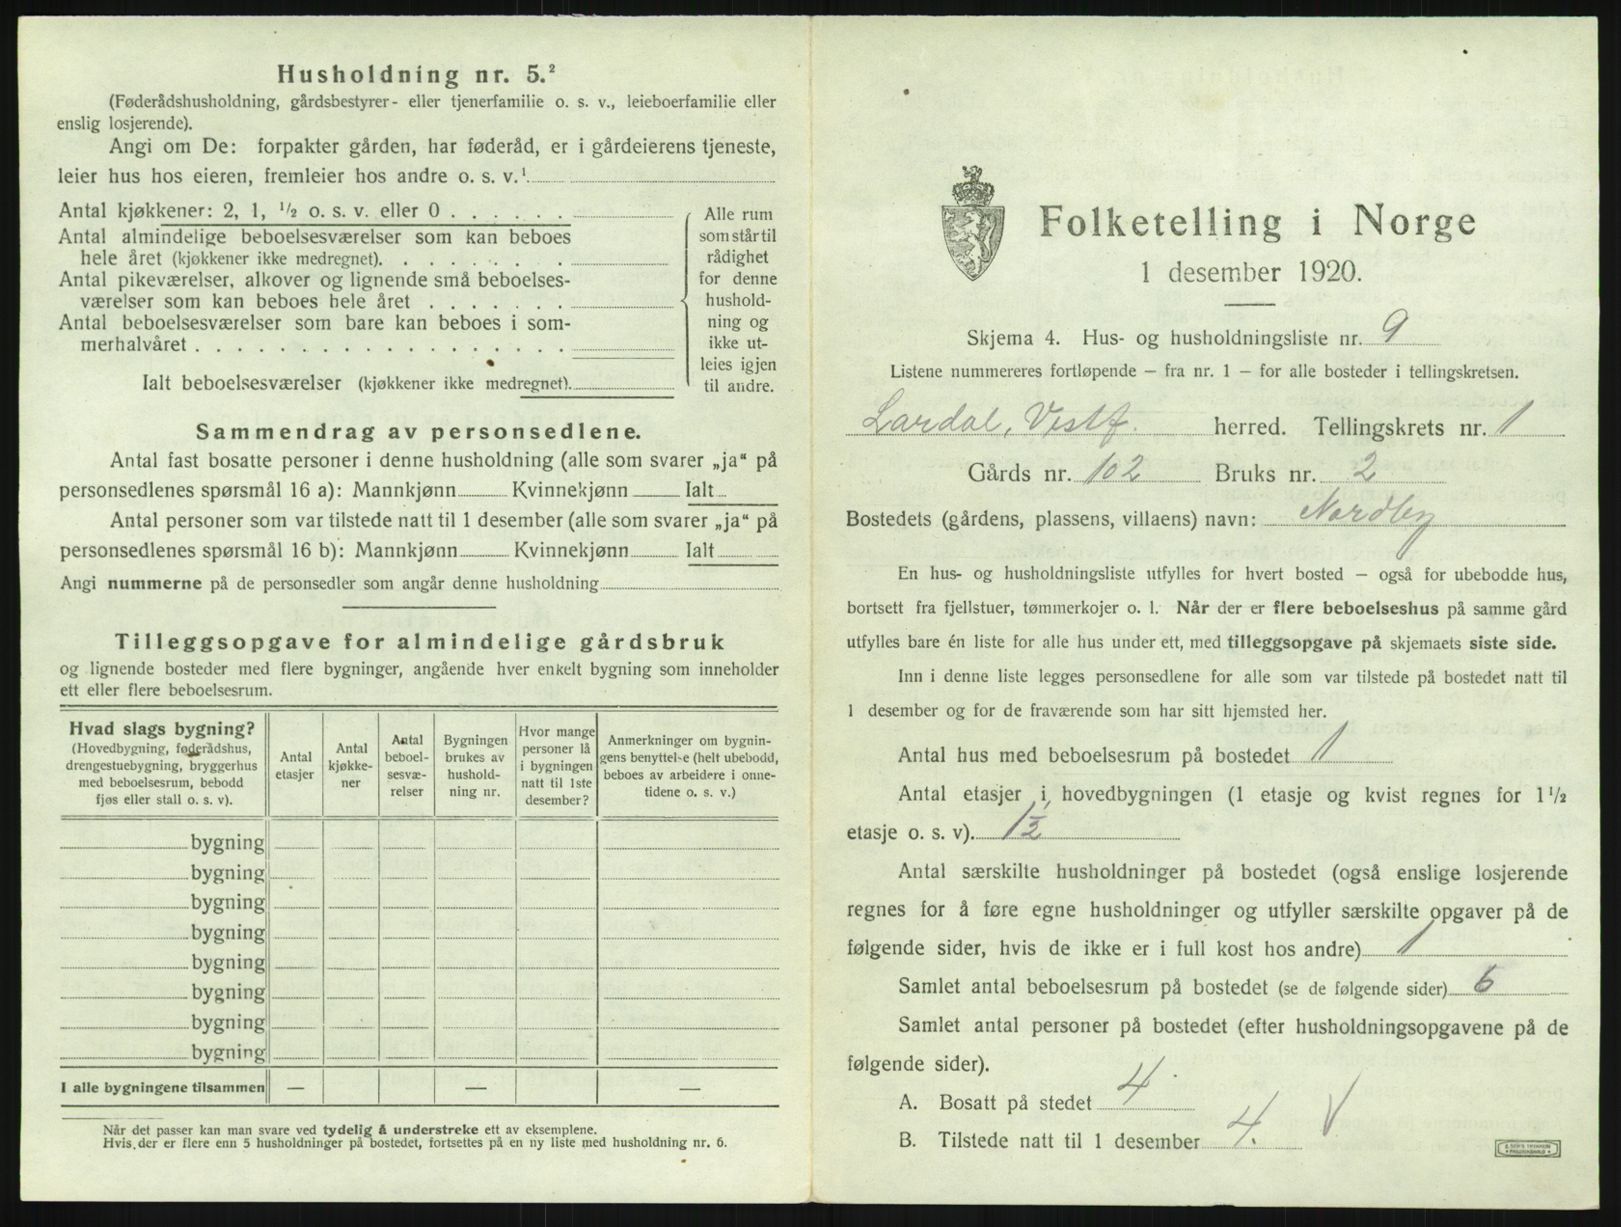 Husholdning nr. 5.²
(Føderådshusholdning, gårdsbestyrer- eller tjenerfamilie o. s. v., leieboerfamilie eller
enslig losjerende).
Angi om De: forpakter gården, har føderåd, er i gårdeierens tjeneste,
leier hus hos eieren, fremleier hos andre o. s. v.¹
Antal kjøkkener: 2, 1, ¹/₂ o. s. v. eller 0 . . . . . .
Antal almindelige beboelsesværelser som kan beboes
hele året (kjøkkener ikke medregnet). . . . . . . . .
Antal pikeværelser, alkover og lignende små beboelses-
værelser som kan beboes hele året . . . . . . .
Antal beboelsesværelser som bare kan beboes i som-
merhalvåret . . . . . . . . . . . . . . . . . .
Alle rum
som står til
rådighet
for denne
hushold-
ning og
ikke ut-
leies igjen
til andre.
Ialt beboelsesværelser (kjøkkener ikke medregnet).
Sammendrag av personsedlene.
Antal fast bosatte personer i denne husholdning (alle som svarer „ja“ på
personsedlenes spørsmål 16 a): Mannkjønn Kvinnekjønn Ialt
Antal personer som var tilstede natt til 1 desember (alle som svarer „ja“ på
personsedlenes spørsmål 16 b): Mannkjønn Kvinnekjønn Ialt
Angi nummerne på de personsedler som angår denne husholdning
Tilleggsopgave for almindelige gårdsbruk
og lignende bosteder med flere bygninger, angående hver enkelt bygning som inneholder
ett eller flere beboelsesrum.
Hvad slags bygning?
(Hovedbygning, føderådshus,
drengestuebygning, bryggerhus
med beboelsesrum, bebodd
fjøs eller stall o. s. v).
Antal
etasjer
Antal
kjøkke-
ner
Antal
beboel-
sesvæ-
relser
Bygningen
brukes av
hushold-
ning nr.
Hvor mange
personer lå
i bygningen
natt til 1ste
desember?
Anmerkninger om bygnin-
gens benyttelse (helt ubebodd,
beboes av arbeidere i onne-
tidene o. s. v.)
bygning
bygning
bygning
bygning
bygning
bygning
bygning
bygning
I alle bygningene tilsammen — — —
Når det passer kan man svare ved tydelig å understreke ett av eksemplene.
Hvis der er flere enn 5 husholdninger på bostedet, fortsettes på en ny liste med husholdning nr. 6.
Folketelling i Norge
1 desember 1920.
Skjema 4. Hus- og husholdningsliste nr. 9
Listene nummereres fortløpende — fra nr. 1 — for alle bosteder i tellingskretsen.
Lardal, Vestf. herred. Tellingskrets nr. 1
Gårds nr. 102 Bruks nr. 2
Bostedets (gårdens, plassens, villaens) navn: Nordby
En hus- og husholdningsliste utfylles for hvert bosted — også for ubebodde hus,
bortsett fra fjellstuer, tømmerkojer o. l. Når der er flere beboelseshus på samme gård
utfylles bare én liste for alle hus under ett, med tilleggsopgave på skjemaets siste side.
Inn i denne liste legges personsedlene for alle som var tilstede på bostedet natt til
1 desember og for de fraværende som har sitt hjemsted her.
Antal hus med beboelsesrum på bostedet 1
Antal etasjer i hovedbygningen (1 etasje og kvist regnes for 1¹/₂
etasje o. s. v). 1½
Antal særskilte husholdninger på bostedet (også enslige losjerende
regnes for å føre egne husholdninger og utfyller særskilte opgaver på de
følgende sider, hvis de ikke er i full kost hos andre) 1
Samlet antal beboelsesrum på bostedet (se de følgende sider) 6
Samlet antal personer på bostedet (efter husholdningsopgavene på de
følgende sider).
A. Bosatt på stedet 4
B. Tilstede natt til 1 desember 4.